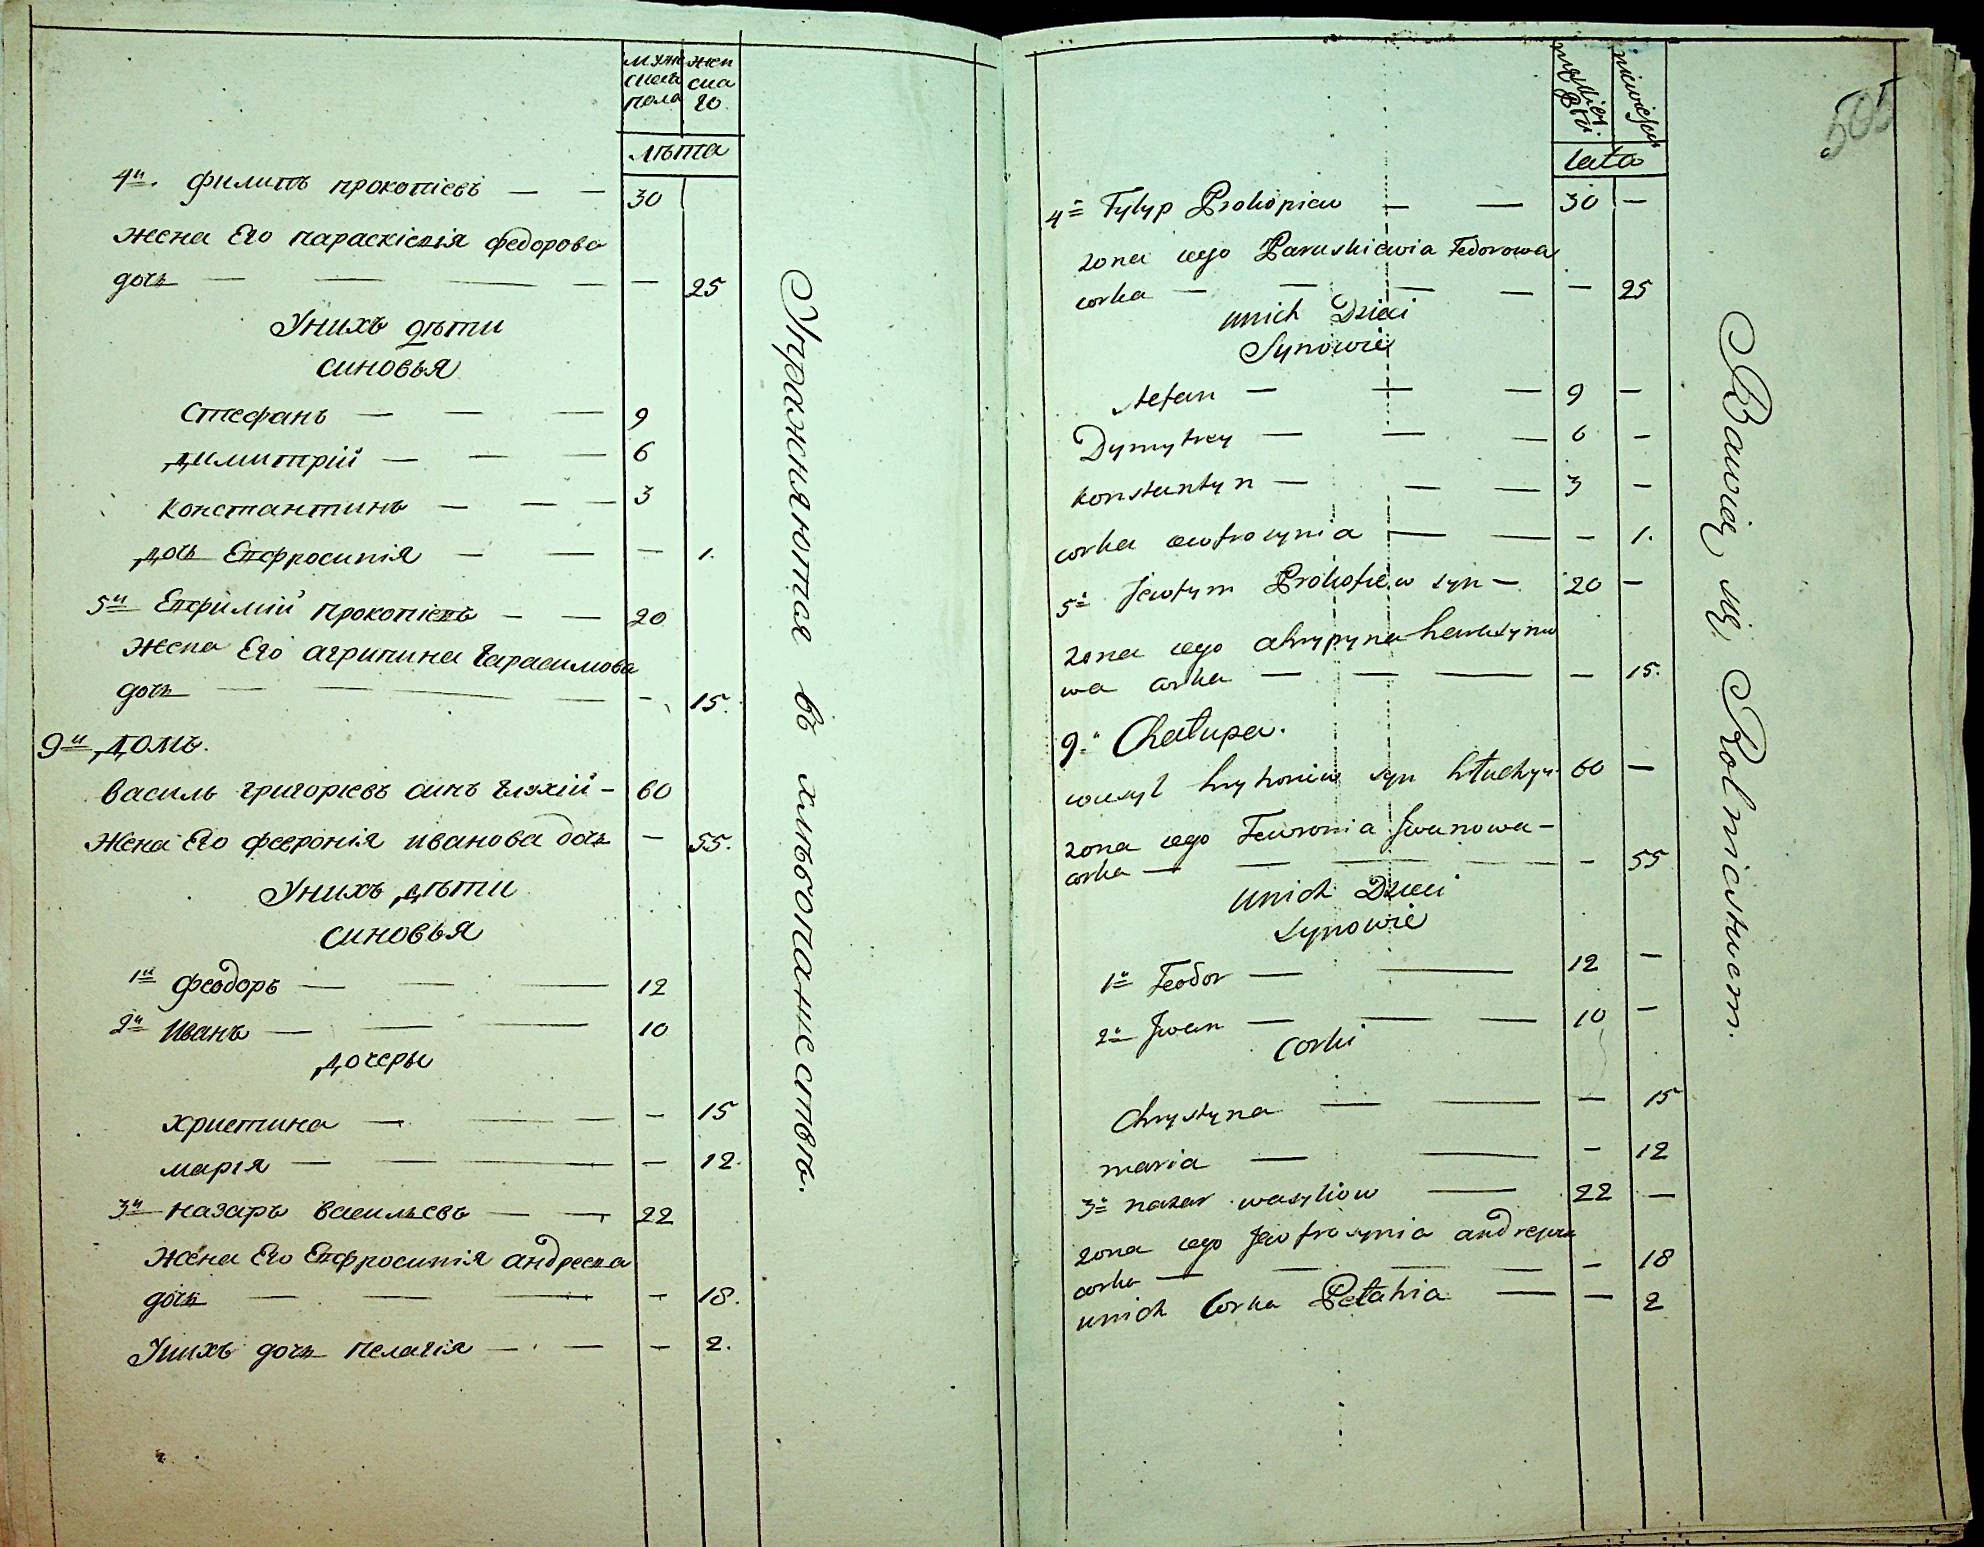 мужеска пола
женска го
лѣта
4й. Филипъ прокопіевъ — — 30
жена Его параскіевія федорова
дочь — — — — — 25
Унихъ дѣти
синовья
Стефанъ — — — 9
димитрій — — — 6
константинъ — — — 3
дочь Евфросинія — — — 1.
5й Евфимій прокопіевъ — — 20
жена Его агрипина Гарасимова
дочь — — — — 15.
9й домъ.
василь григорієвъ синъ Глухій — 60
жена Его февронія иванова дочь — 55.
Унихъ дѣти
синовья
1й феодоръ — — — 12
2й Иванъ — — — 10
дочеры
христина — — — — 15
марія — — — — 12.
3й назаръ васильевъ — — 22
жена Его Евфросинія андреева
дочь — — — — 18.
Унихъ дочь пелагія — — — — 2.
Упражняются въ хлѣбопашествѣ.
505
lata
4й Fylyp Prokopiew — — 30 —
zona iego Paraskiewia Fedorowa
corka — — — — — 25
unich Dzieci
Synowie
stefan — — — 9 —
Dymytrey — — — 6 —
konstantyn — — — 3 —
corka iewfrosynia — — — 1.
5й Jewfym Prokopiew syn — 20 —
zona iego ahrypyna harasymo
wa corka — — — — 15.
9й Chałupa.
wasyl hryhoriew syn hłuchyy 60 —
zona iego Fewronia Jwanowa —
corka — — — — — 55
unich Dzieci
synowie
1й Feodor — — 12 —
2й Jwan — — — 10 —
corki
Chrystyna — — — 15
maria — — — 12
3й nazar wasyliow — 22 —
zona iego Jewfrosynia andrejewa
corka — — — — — 18
unich Corka Pełahia — — 2
Bawią się Rolnictwem.